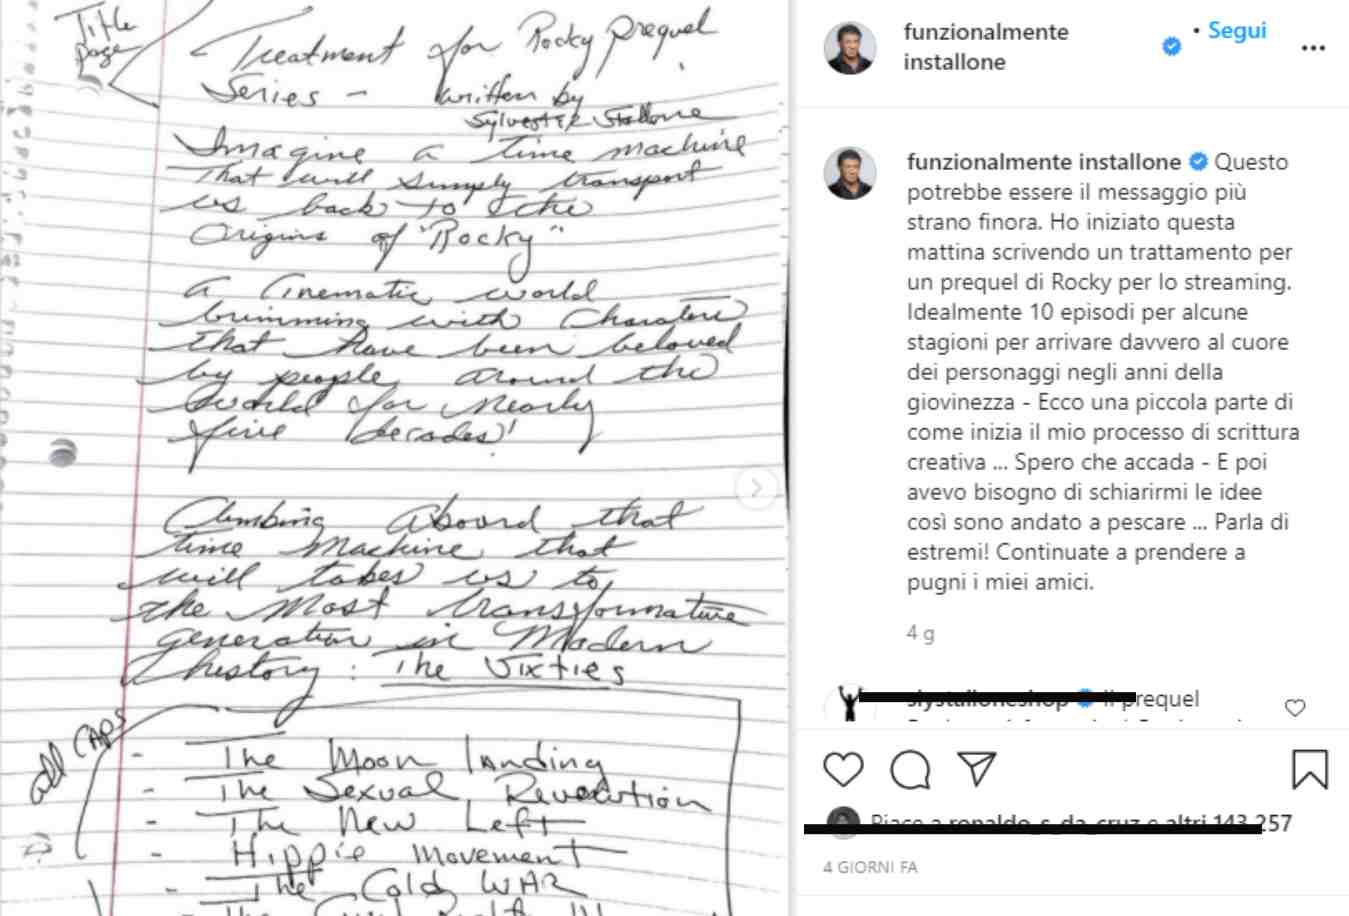 Title
page
Treatment for Rocky prequel
Series - written by
Sylvester Stallone
Imagine a time machine
That will simply transport
us back to the
Origins of "Rocky"
A Cinematic world
brimming with Characters
that have been beloved
by people around the
World for Nearly
five decades!
Climbing Aboard that
time Machine that
will takes us to
the Most transformative
generation in Modern
history: The Sixties
all CAPS
- The Moon landing
- The Sexual Revolution
- The New Left
- Hippie Movement
- The Cold WAR
funzionalmente
installone
• Segui
funzionalmente installone Questo
potrebbe essere il messaggio più
strano finora. Ho iniziato questa
mattina scrivendo un trattamento per
un prequel di Rocky per lo streaming.
Idealmente 10 episodi per alcune
stagioni per arrivare davvero al cuore
dei personaggi negli anni della
giovinezza - Ecco una piccola parte di
come inizia il mio processo di scrittura
creativa ... Spero che accada - E poi
avevo bisogno di schiarirmi le idee
così sono andato a pescare ... Parla di
estremi! Continuate a prendere a
pugni i miei amici.
4 g
slystalloneshop Il prequel
Piace a ronaldo_s_da_cruz e altri 143.257
4 GIORNI FA